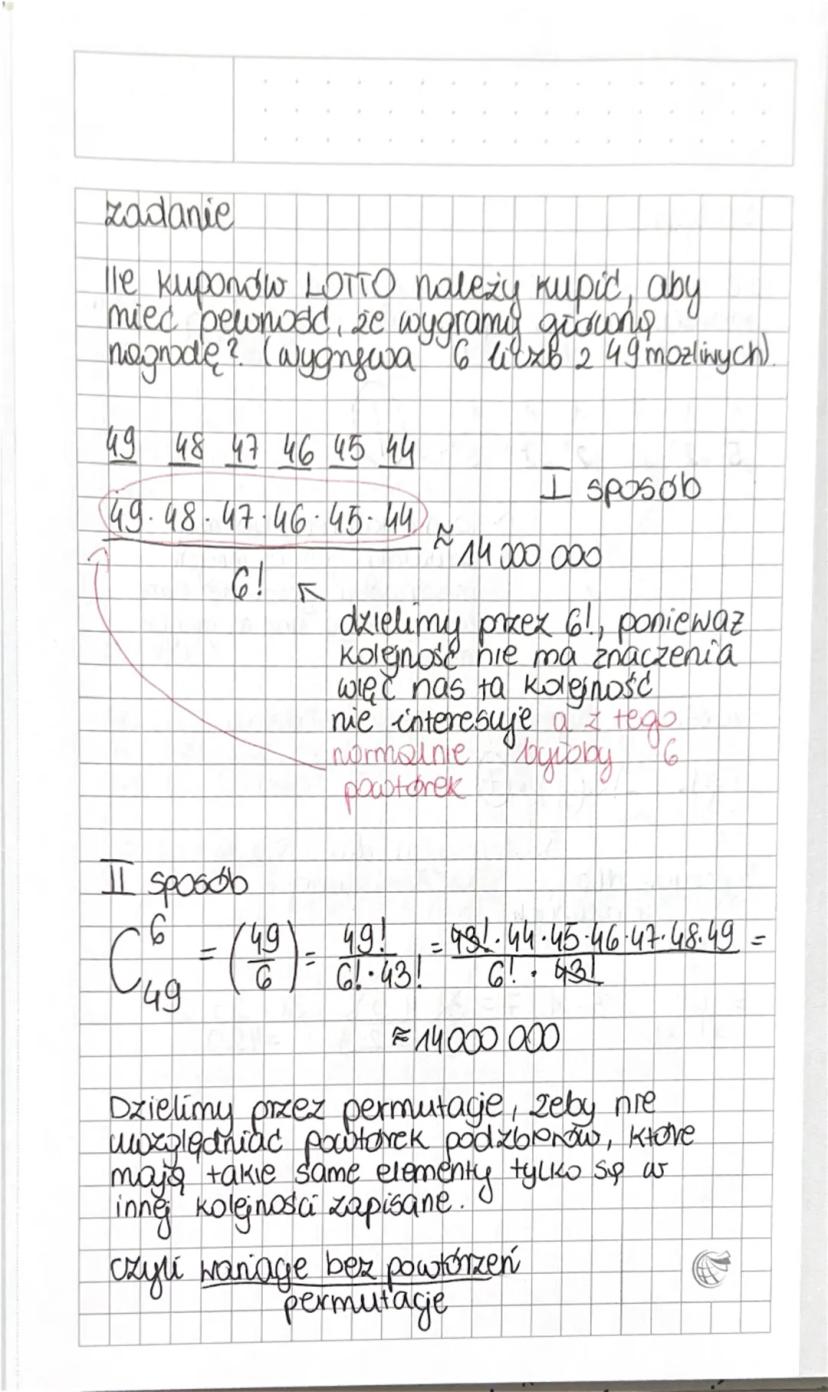 zadanie
Ile kuponów LOTTO należy kupić, aby
mieć pewność, że wygramy główną
nagrodę? (wygrywa 6 liczb z 49 możliwych).
49 48 47 46 45 44
I sposób
49 · 48 · 47 · 46 · 45 · 44
≈ 14 000 000
6!
dzielimy przez 6!, ponieważ
kolejność nie ma znaczenia
więc nas ta kolejność
nie interesuje a z tego
normalnie byłoby 6
powtórek
II sposób
C⁶₄₉ = (49/6) = 49!/(6! · 43!) = 43! · 44 · 45 · 46 · 47 · 48 · 49/(6! · 43!) =
≈ 14 000 000
Dzielimy przez permutacje, żeby nie
uwzględniać powtórek podzbiorów, które
mają takie same elementy tylko są w
innej kolejności zapisane.
czyli wariacje bez powtórzeń
permutacje